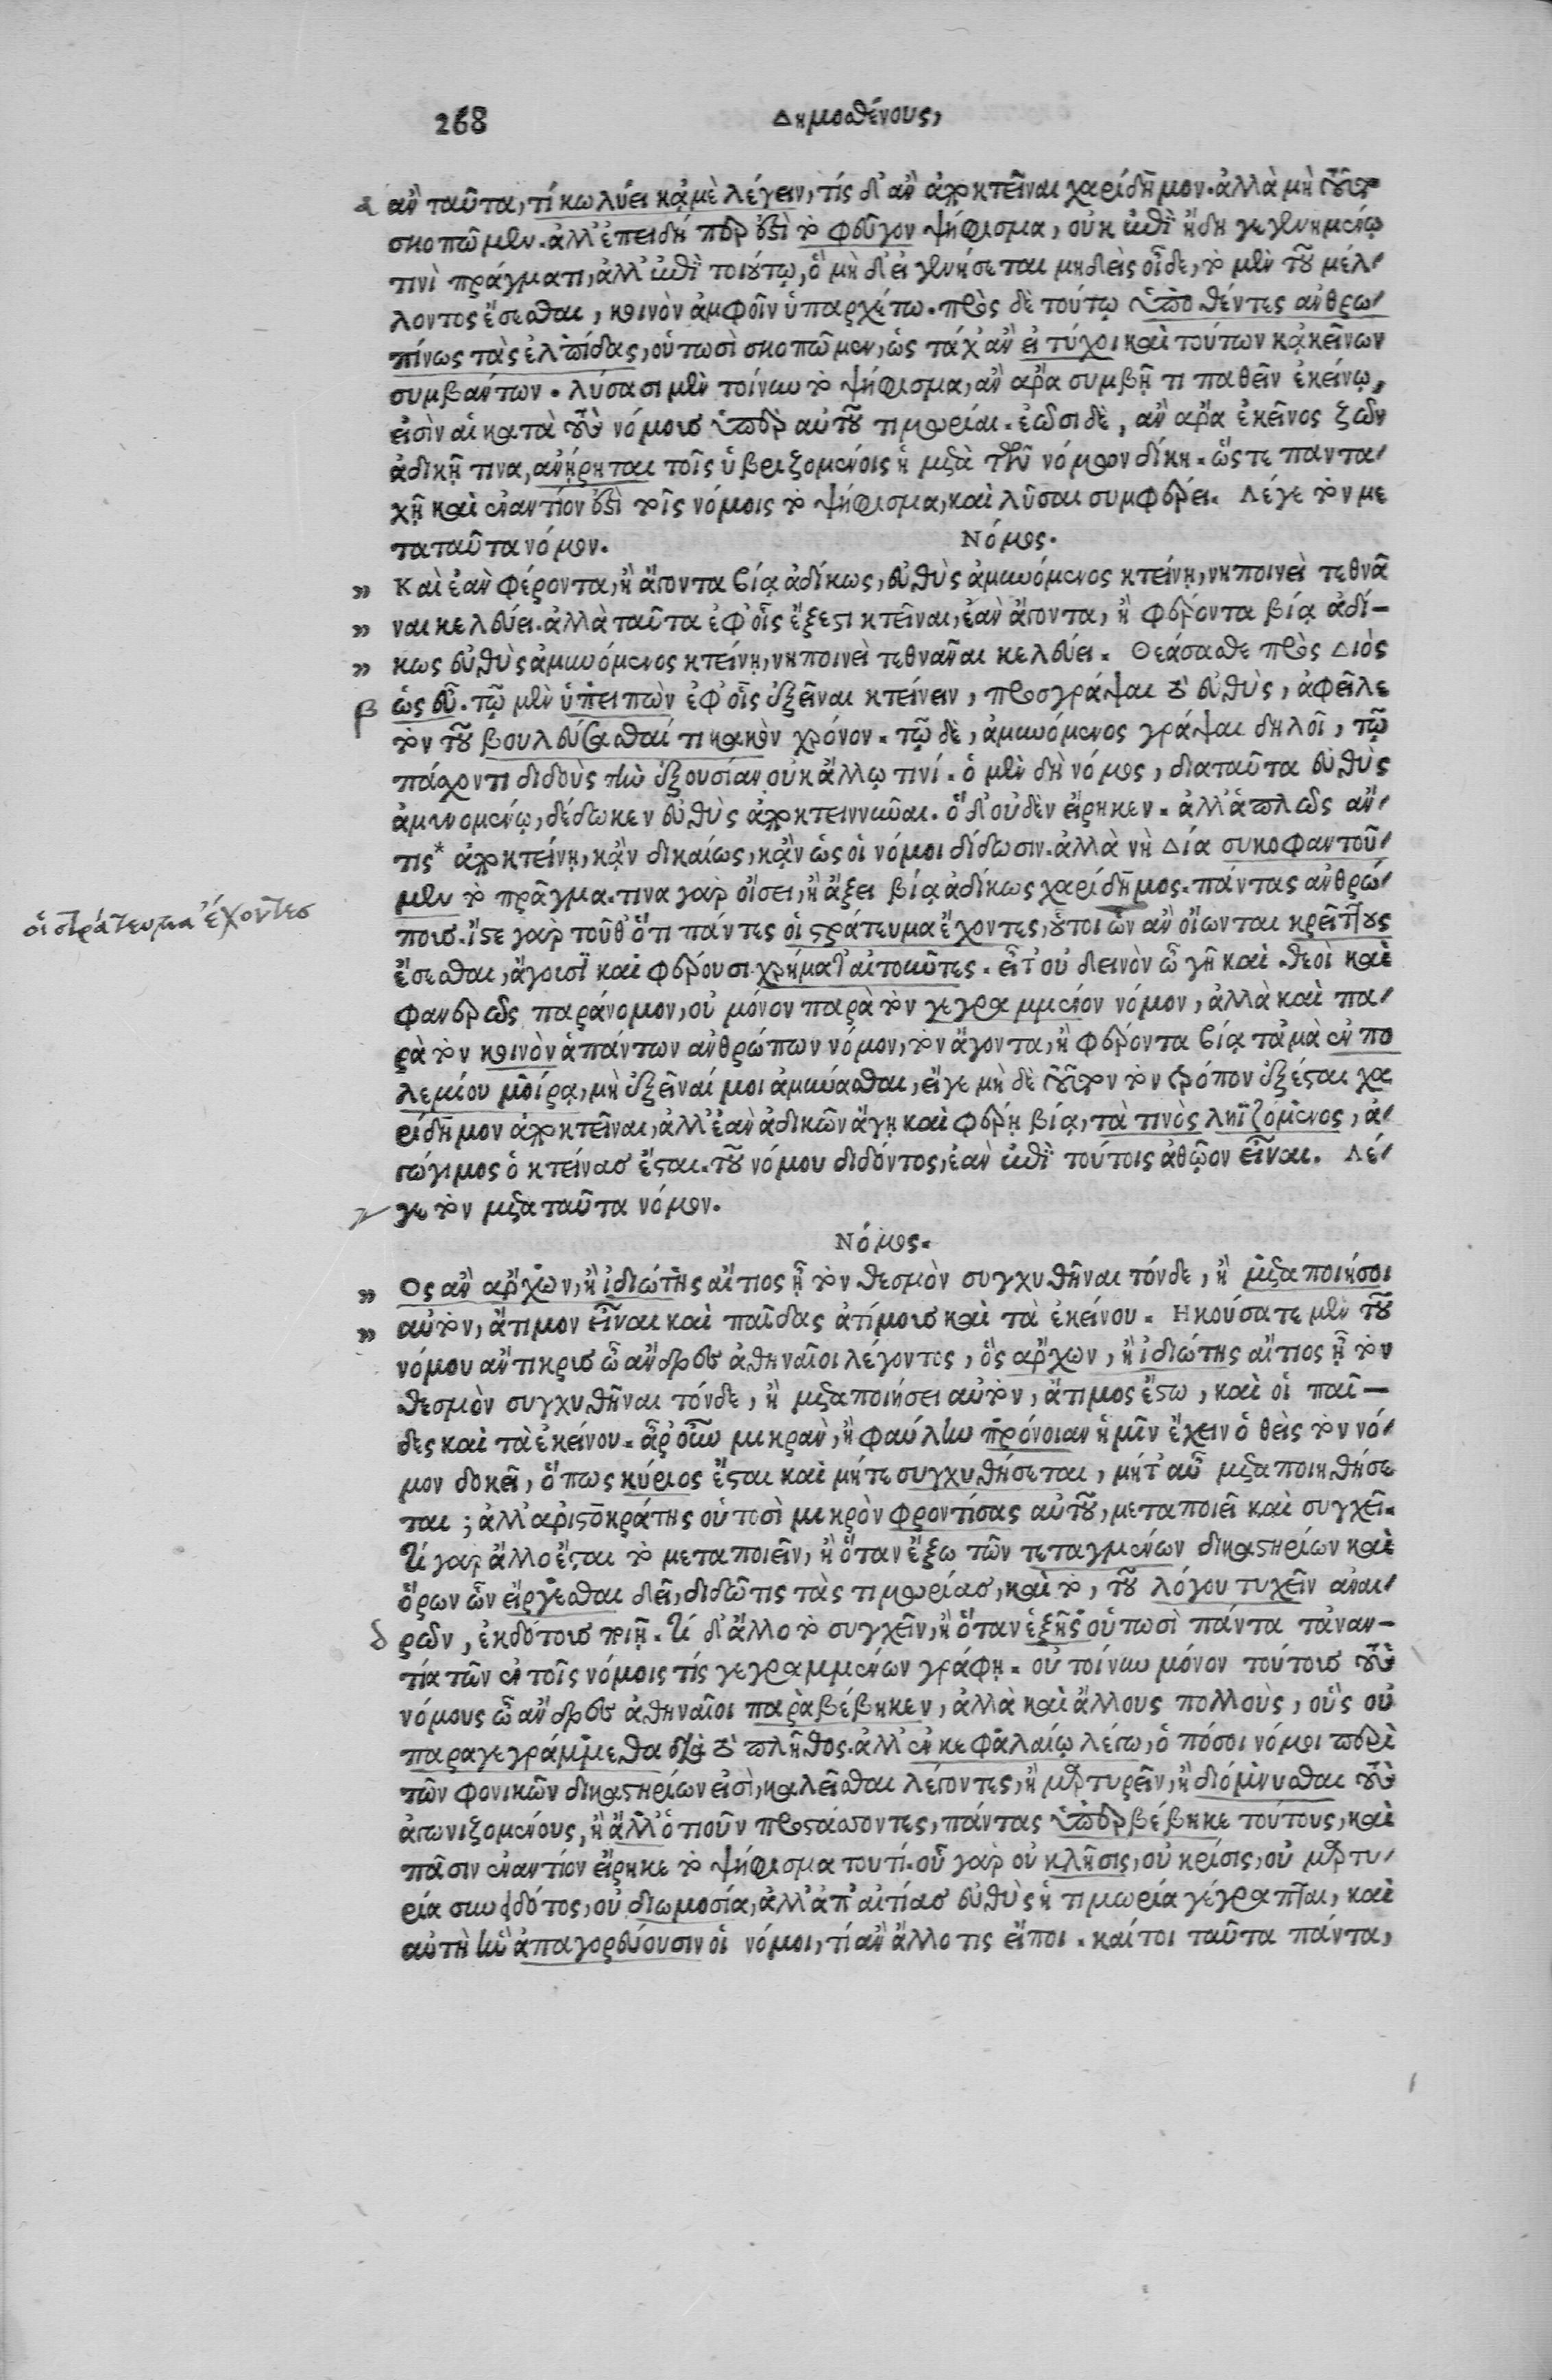 268 Δημοσθένους,
α ἂν ταῦτα, τί κωλύει κᾀμὲ λέγειν, τίς δ' ἂν ἀποκτεῖναι χαρίδημον. ἀλλὰ μὴ τοῦτο
σκοπῶμεν. ἀλλ' ἐπειδή περ ἐστὶ τὸ φεῦγον ψήφισμα, οὐκ ἐπὶ ἤδη γεγενημένῳ
τινὶ πράγματι, ἀλλ' ἐπὶ τοιούτῳ, ὃ μὴ δ' εἰ γενήσεται μηδεὶς οἶδε, τὸ μὲν τοῦ μέλ-
λοντος ἔσεσθαι, κοινὸν ἀμφοῖν ὑπαρχέτω. πρὸς δὲ τούτῳ ὑποθέντες ἀνθρω-
πίνως τὰς ἐλπίδας, οὑτωσὶ σκοπῶμεν, ὡς τάχ' ἂν εἰ τύχοι καὶ τούτων κᾀκείνων
συμβάντων. λύσασι μὲν τοίνυν τὸ ψήφισμα, ἂν ἄρα συμβῇ τι παθεῖν ἐκείνῳ,
εἰσὶν αἱ κατὰ τοὺς νόμους ὑπὲρ αὐτοῦ τιμωρίαι. ἐῶσι δὲ, ἂν ἄρα ἐκεῖνος ζῶν
ἀδικῇ τινα, ἀνῄρηται τοῖς ὑβριζομένοις ἡ μετὰ τῶν νόμων δίκη. ὥστε παντα-
χῇ καὶ ἐναντίον ἐστὶ τοῖς νόμοις τὸ ψήφισμα, καὶ λῦσαι συμφέρει. Λέγε τὸν με
τα ταῦτα νόμον. Νόμος.
» Καὶ ἐὰν φέροντα, ἢ ἄγοντα βίᾳ ἀδίκως, εὐθὺς ἀμυνόμενος κτείνῃ, νηποινεὶ τεθνᾶ
» ναι κελεύει. ἀλλὰ ταῦτα ἐφ' οἷς ἔξεστι κτεῖναι, ἐὰν ἄγοντα, ἢ φέροντα βίᾳ ἀδί-
» κως εὐθὺς ἀμυνόμενος κτείνῃ, νηποινεὶ τεθνᾶναι κελεύει. Θεάσασθε πρὸς Διὸς
β ὡς εὖ. τῷ μὲν ὑπειπὼν ἐφ' οἷς ἐξεῖναι κτείνειν, προσγράψαι τὸ εὐθὺς, ἀφεῖλε
τὸν τοῦ βουλεύσασθαί τι κακὸν χρόνον. τῷ δὲ, ἀμυνόμενος γράψαι δηλοῖ, τῷ
πάσχοντι διδοὺς τὴν ἐξουσίαν οὐκ ἄλλῳ τινί. ὁ μὲν δὴ νόμος, διαταῦτα εὐθὺς
ἀμυνομένῳ, δέδωκεν εὐθὺς ἀποκτειννύναι. ὃ δ' οὐδὲν εἴρηκεν. ἀλλ' ἁπλῶς ἄν-
τις* ἀποκτείνῃ, κᾂν δικαίως, κᾂν ὡς οἱ νόμοι δίδωσιν. ἀλλὰ νὴ Δία συκοφαντοῦ-
μεν τὸ πρᾶγμα. τινα γὰρ οἴσει, ἢ ἄξει βίᾳ ἀδίκως χαρίδημος. πάντας ἀνθρώ-
οἱ στράτευμα ἔχοντες
πους. ἴστε γὰρ τοῦθ' ὅτι πάντες οἱ στράτευμα ἔχοντες, οὗτοι ὧν ἂν οἴωνται κρείττους
ἔσεσθαι, ἄγουσι καὶ φέρουσι χρήματ' αἰτοῦντες. εἶτ' οὐ δεινὸν ὦ γῆ καὶ θεοὶ καὶ
φανερῶς παράνομον, οὐ μόνον παρὰ τὸν γεγραμμένον νόμον, ἀλλὰ καὶ πα-
ρὰ τὸν κοινὸν ἁπάντων ἀνθρώπων νόμον, τὸν ἄγοντα, ἢ φέροντα βίᾳ τἀμὰ ἐν πο
λεμίου μοίρᾳ, μὴ ἐξεῖναί μοι ἀμύνασθαι, εἴγε μὴ δὲ τοῦτον τὸν τρόπον ἐξέσται χα
ρίδημον ἀποκτεῖναι, ἀλλ' ἐὰν ἀδικῶν ἄγῃ καὶ φέρῃ βίᾳ, τὰ τινὸς ληϊζόμενος, ἀ-
γώγιμος ὁ κτείνας ἔσται. τοῦ νόμου διδόντος, ἐὰν ἐπὶ τούτοις ἀθῷον εἶναι. Λέ-
γ γε τὸν μετα ταῦτα νόμον.
Νόμος.
» Ος ἂν ἄρχων, ἢ ἰδιώτης αἴτιος ᾖ τὸν θεσμὸν συγχυθῆναι τόνδε, ἢ μεταποιήσοι
» αὐτὸν, ἄτιμον εἶναι καὶ παῖδας ἀτίμους καὶ τὰ ἐκείνου. Ηκούσατε μὲν τοῦ
νόμου ἄντικρυς ὦ ἄνδρες ἀθηναῖοι λέγοντος, ὃς ἄρχων, ἢ ἰδιώτης αἴτιος ᾖ τὸν
θεσμὸν συγχυθῆναι τόνδε, ἢ μεταποιήσει αὐτὸν, ἄτιμος ἔστω, καὶ οἱ παῖ-
δες καὶ τὰ ἐκείνου. ἆρ' οὖν μικρὰν, ἢ φαύλην πρόνοιαν ἡμῖν ἔχειν ὁ θεὶς τὸν νό-
μον δοκεῖ, ὅπως κύριος ἔσται καὶ μήτε συγχυθήσεται, μήτ' αὖ μεταποιηθήσε
ται; ἀλλ' ἀριστοκράτης οὑτοσὶ μικρὸν φροντίσας αὐτοῦ, μεταποιεῖ καὶ συγχεῖ.
τί γὰρ ἄλλο ἔσται τὸ μεταποιεῖν, ἢ ὅταν ἔξω τῶν τεταγμένων δικαστηρίων καὶ
ὅρων ὧν εἴργεσθαι δεῖ, διδῶ τις τὰς τιμωρίας, καὶ τὸ, τοῦ λόγου τυχεῖν ἀναι-
δ ρῶν, ἐκδότους ποιῇ. τί δ' ἄλλο τὸ συγχεῖν, ἢ ὅταν ἑξῆς οὑτωσὶ πάντα τἀναν-
τία τῶν ἐν τοῖς νόμοις τίς γεγραμμένων γράφῃ. οὐ τοίνυν μόνον τούτους τοὺς
νόμους ὦ ἄνδρες ἀθηναῖοι παραβέβηκεν, ἀλλὰ καὶ ἄλλους πολλοὺς, οὓς οὐ
παραγεγράμμεθα διὰ τὸ πλῆθος. ἀλλ' ἐν κεφαλαίῳ λέγω, ὁπόσοι νόμοι περὶ
τῶν φονικῶν δικαστηρίων εἰσὶ, καλεῖσθαι λέγοντες, ἢ μαρτυρεῖν, ἢ διόμνυσθαι τοὺς
ἀγωνιζομένους, ἢ ἄλλ' ὁτιοῦν προστάσσοντες, πάντας ὑπερβέβηκε τούτους, καὶ
πᾶσιν ἐναντίον εἴρηκε τὸ ψήφισμα τουτί. οὗ γὰρ οὐ κλῆσις, οὐ κρίσις, οὐ μαρτυ-
ρία συνειδότος, οὐ διωμοσία, ἀλλ' ἀπ' αἰτίας εὐθὺς ἡ τιμωρία γέγραπται, καὶ
αὐτὴ ἣν ἀπαγορεύουσιν οἱ νόμοι, τί ἂν ἄλλο τις εἴποι. καίτοι ταῦτα πάντα,